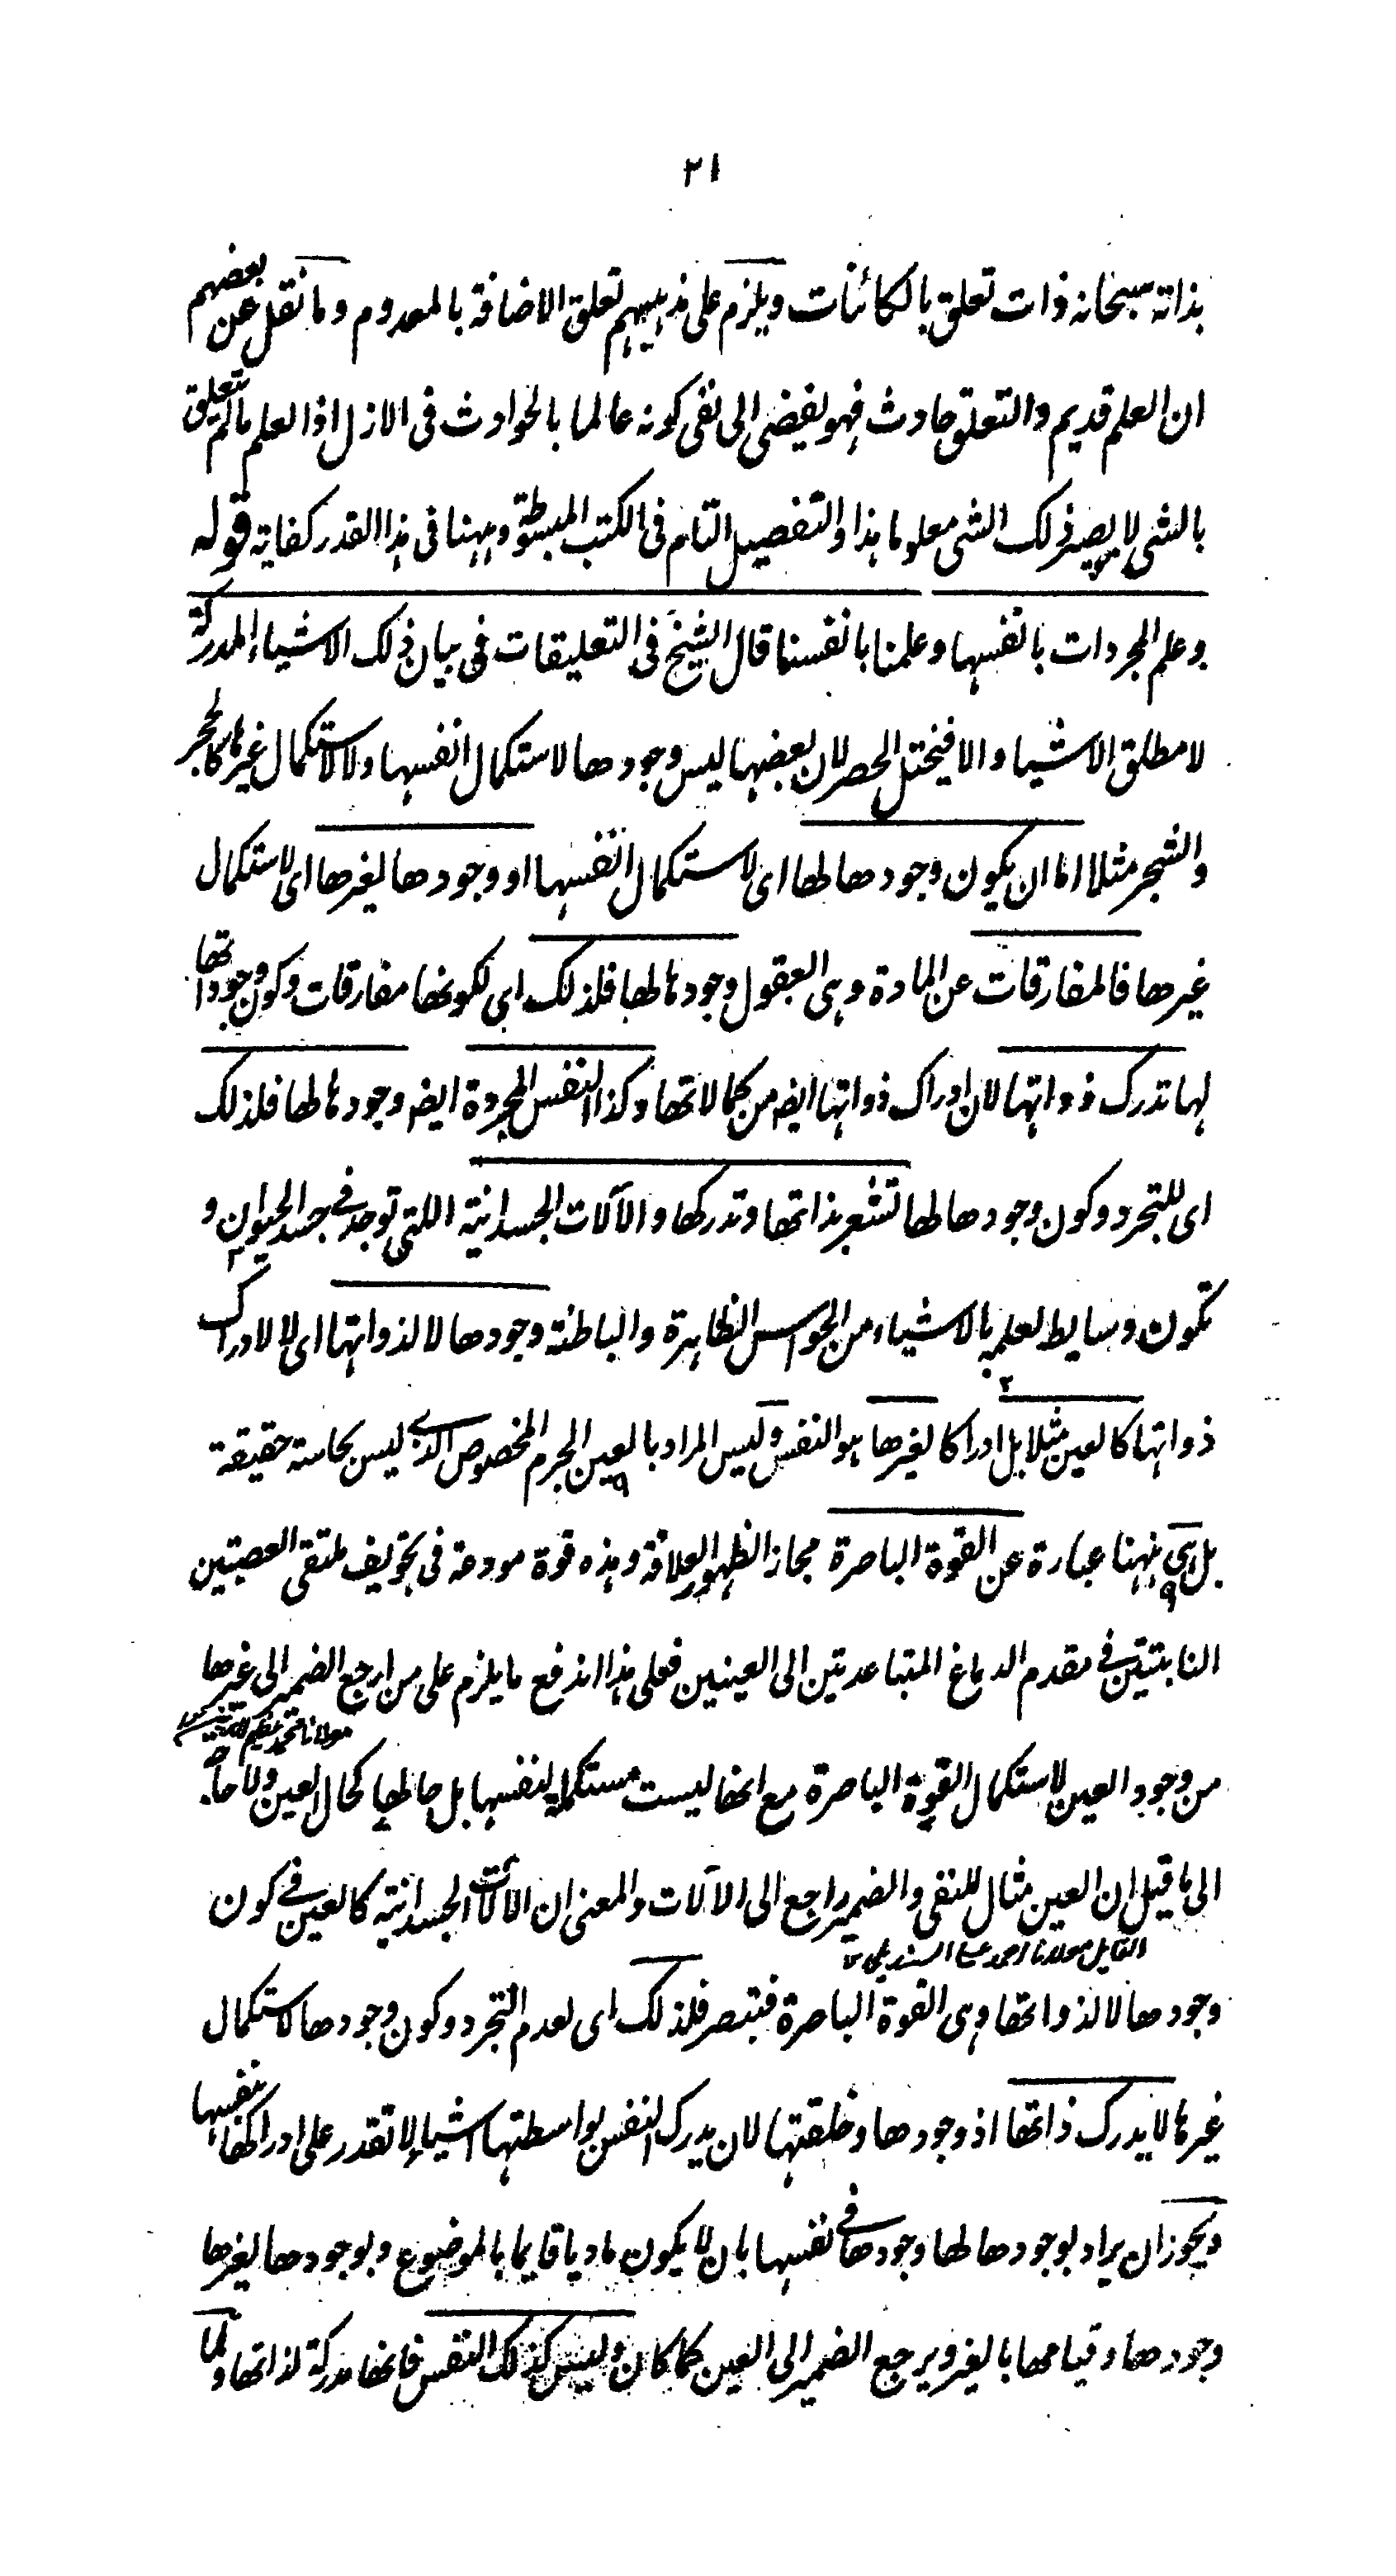 ٢١
بذاته سبحانه ذات تعلق بالكائنات ويلزم على مذهبهم تعلق الاضافة بالمعدوم وما نقل عن بعضهم
ان العلم قديم والتعلق حادث فهو يفضى الى نفى كونه عالما بالحوادث فى الازل اذا لعلم مالم يتعلق
بالشئ لا يصير ذلك الشئ معلوما هذا والتفصيل التام فى الكتب المبسوطة وههنا فى هذا القدر كفاية قوله
وعلم المجردات بانفسها وعلمنا بانفسنا قال الشيخ فى التعليقات فى بيان ذلك الاشياء المدركة
لا مطلق الاشياء والا فيختل الحصر لان بعضها ليس وجودها لاستكمال انفسها ولا لاستكمال غيرها كالحجر
والشجر مثلا اما ان يكون وجودها لها اى لاستكمال انفسها او وجودها لغيرها اى لاستكمال
غيرها فالمفارقات عن المادة وهى العقول وجودها لها فلذلك اى لكونها مفارقات وكون وجوداتها
لها تدرك ذواتها لان ادراك ذواتها ايضا من كمالاتها وكذا النفس المجردة ايضا وجودها لها فلذلك
اى للتجرد وكون وجودها لها تشعر بذاتها وتدركها والآلات الجسدانية اللتى توجد فى جسد الحيوان و
تكون وسايط لعلمه بالاشياء من الحواس الظاهرة والباطنة وجودها لا لذواتها اى لا لادراك
ذواتها كالعين مثلا بل ادراكا لغيرها هو النفس وليس المراد بالعين الجرم المخصوص الذى ليس بحاسة حقيقة
بل هى ههنا عبارة عن القوة الباصرة مجازا لظهور العلاقة وهذه قوة مودعة فى تجويف ملتقى العصبتين
النابتتين فى مقدم الدماغ المتباعدتين الى العينين فعلى هذا اندفع ما يلزم على من ارجع الضمير الى غيرها
مولانا محمد عظيم
من وجود العين لاستكمال القوة الباصرة مع انها ليست مستكملة لنفسها بل حالها كحال العين ولا حاجة
الى ما قيل ان العين مثال للنفى والضمير راجع الى الآلات والمعنى ان الآلات الجسدانية كالعين فى كون
القايل مولانا احمد على السنديلى
وجودها لا لذواتها وهى القوة الباصرة فتبصر فلذلك اى لعدم التجرد وكون وجودها لاستكمال
غيرها لا يدرك ذاتها اذ وجودها وخلقتها لان يدرك النفس بواسطتها اشياء لا تقدر على ادراكها بنفسها
ويجوز ان يراد بوجودها لها وجودها فى نفسها بان لا يكون ماديا قايما بالموضوع وبوجودها لغيرها
وجودها وقيامها بالغير ويرجع الضمير الى العين كما كان وليس كذلك النفس فانها مدركة لذاتها ولما